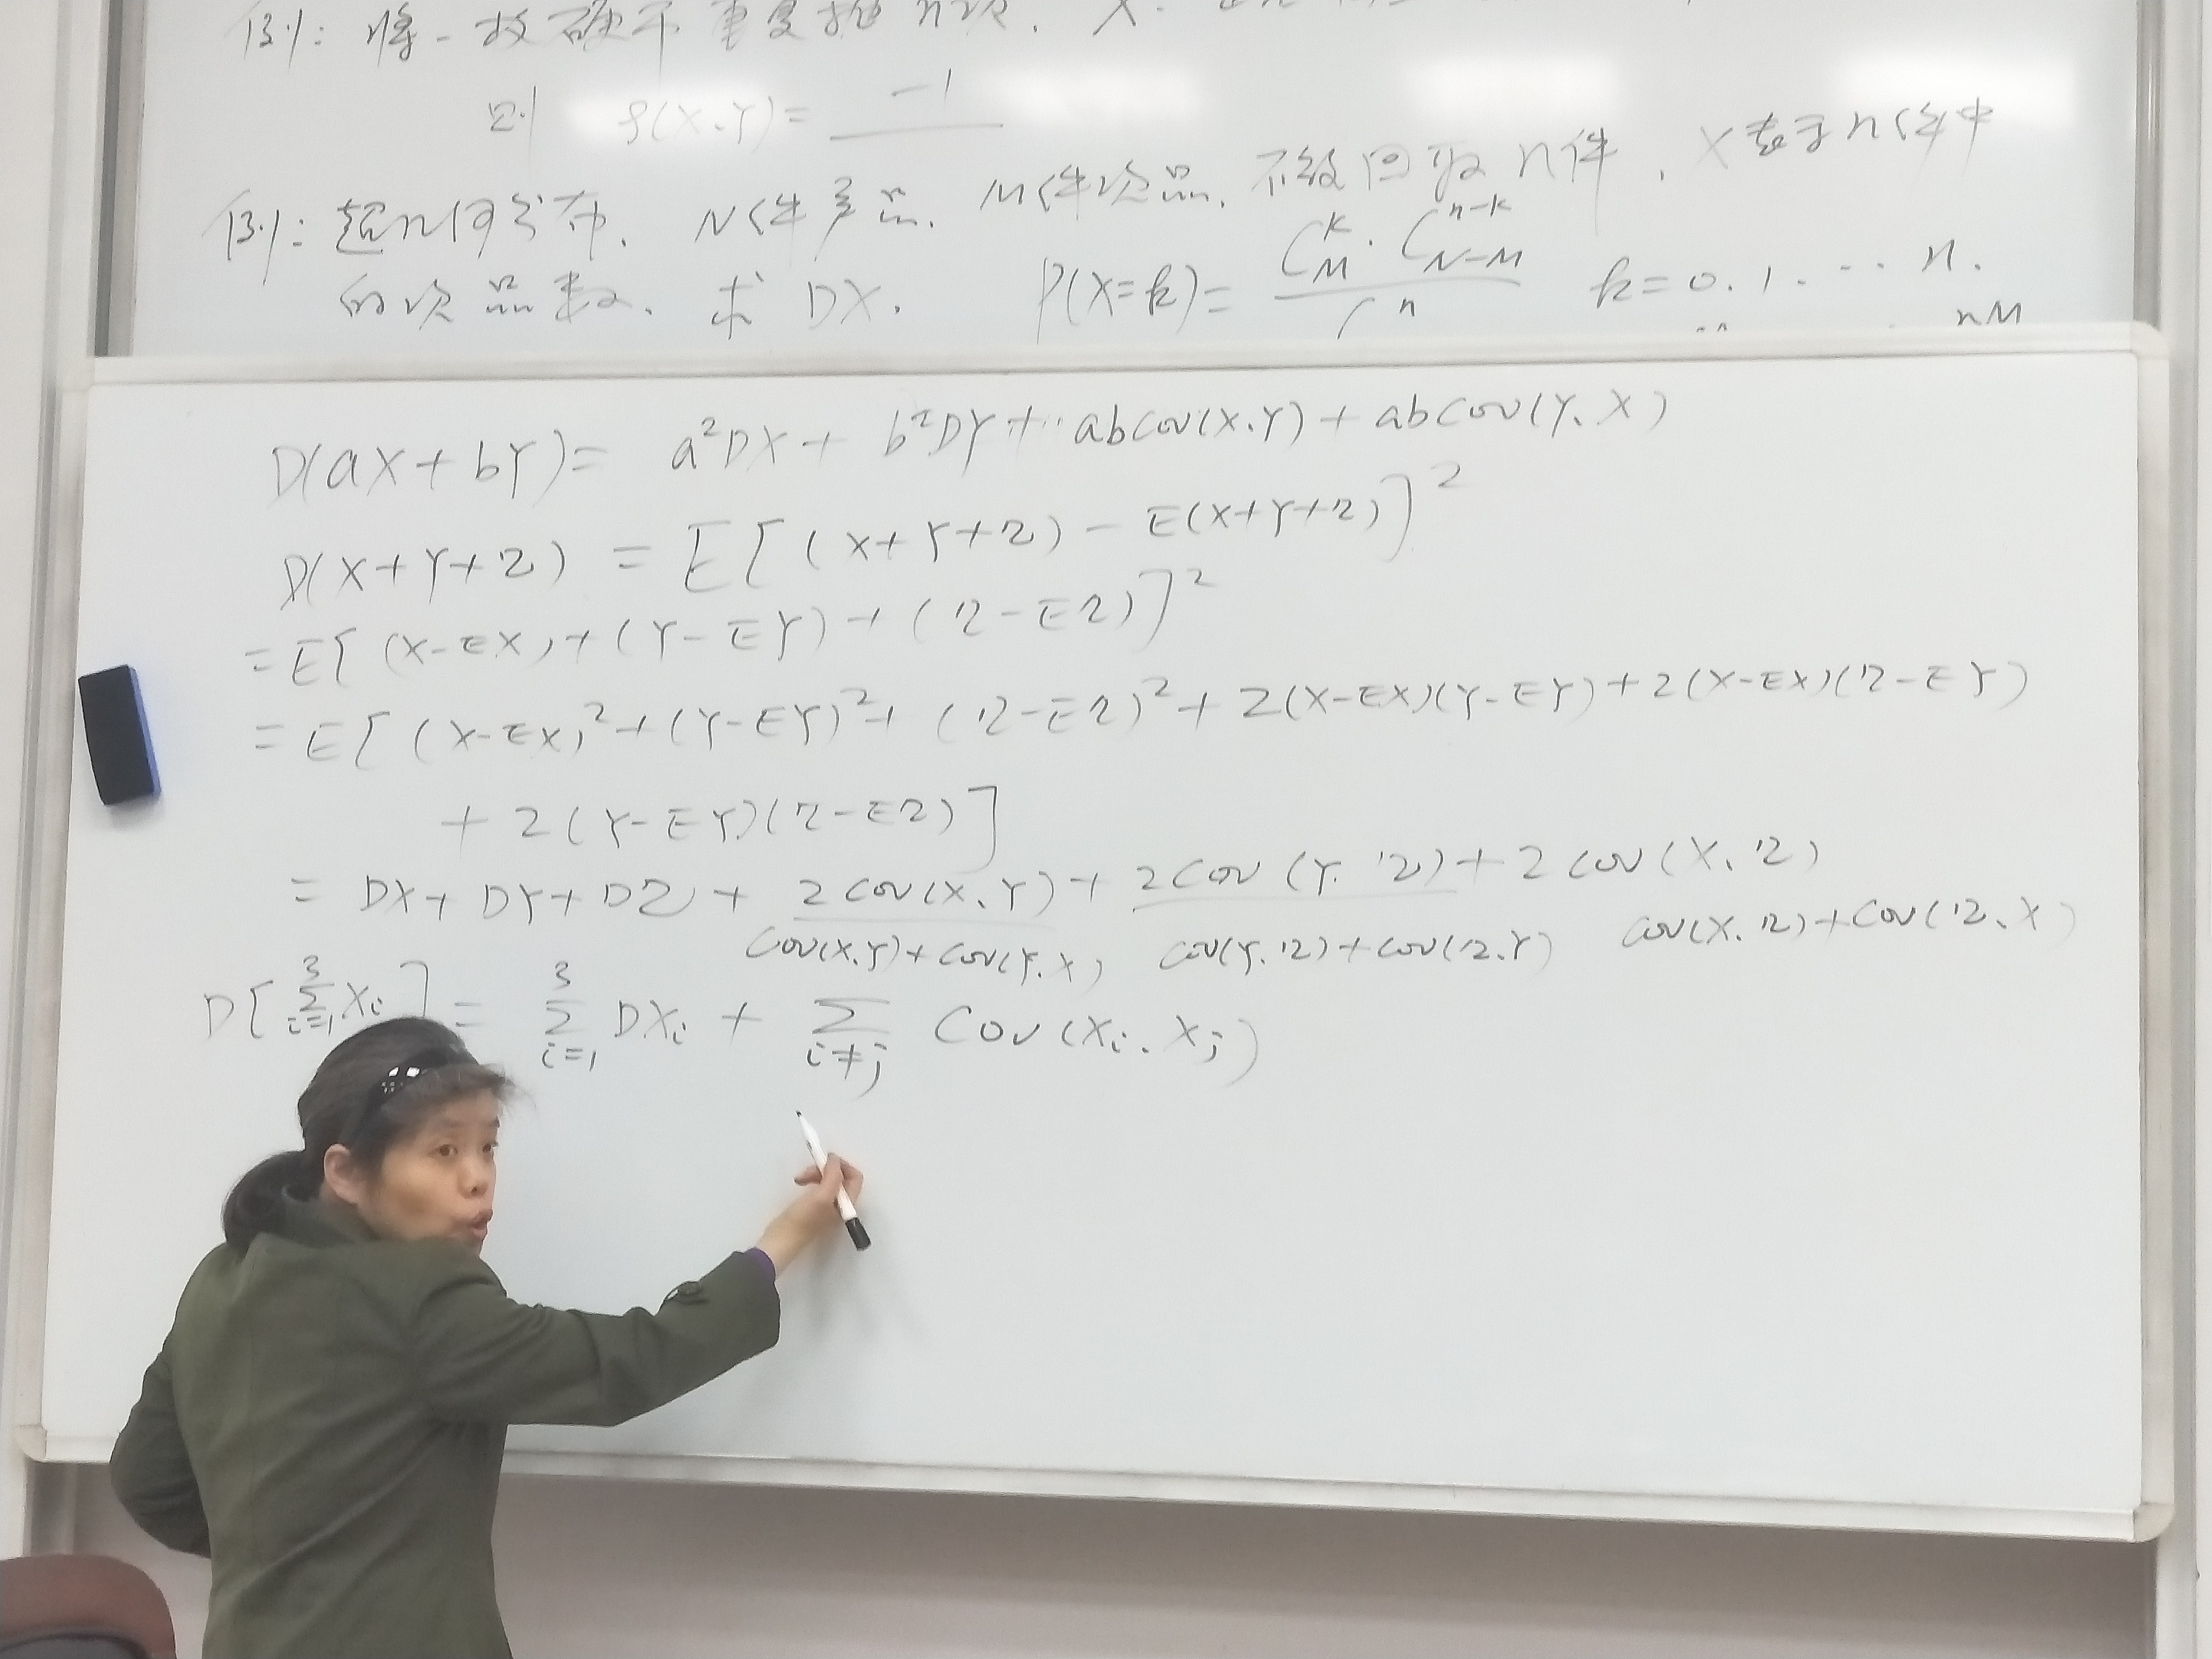 例: 将一枚硬币重复抛n次. X
则 ρ(X.Y)= -1
例: 超几何分布. N件产品. M件次品. 不放回取n件. X表示n件中
的次品数. 求 DX. P(X=k)= C_M^k · C_{N-M}^{n-k} / C^n k=0.1.…n.
nM
D(aX+bY)= a²DX+ b²DY+ abCov(X.Y)+ abCov(Y.X)
D(X+Y+Z) = E[(X+Y+Z) - E(X+Y+Z)]²
=E[(X-EX)+(Y-EY)+(Z-EZ)]²
=E[(X-EX)²+(Y-EY)²+(Z-EZ)²+2(X-EX)(Y-EY)+2(X-EX)(Z-EY)
+2(Y-EY)(Z-EZ)]
= DX+DY+DZ+ 2Cov(X.Y)+ 2Cov(Y.Z)+2Cov(X.Z)
Cov(X.Y)+Cov(Y.X) Cov(Y.Z)+Cov(Z.Y) Cov(X.Z)+Cov(Z.X)
D[∑_{i=1}^3 Xi] = ∑_{i=1}^3 DXi + ∑_{i≠j} Cov(Xi.Xj)